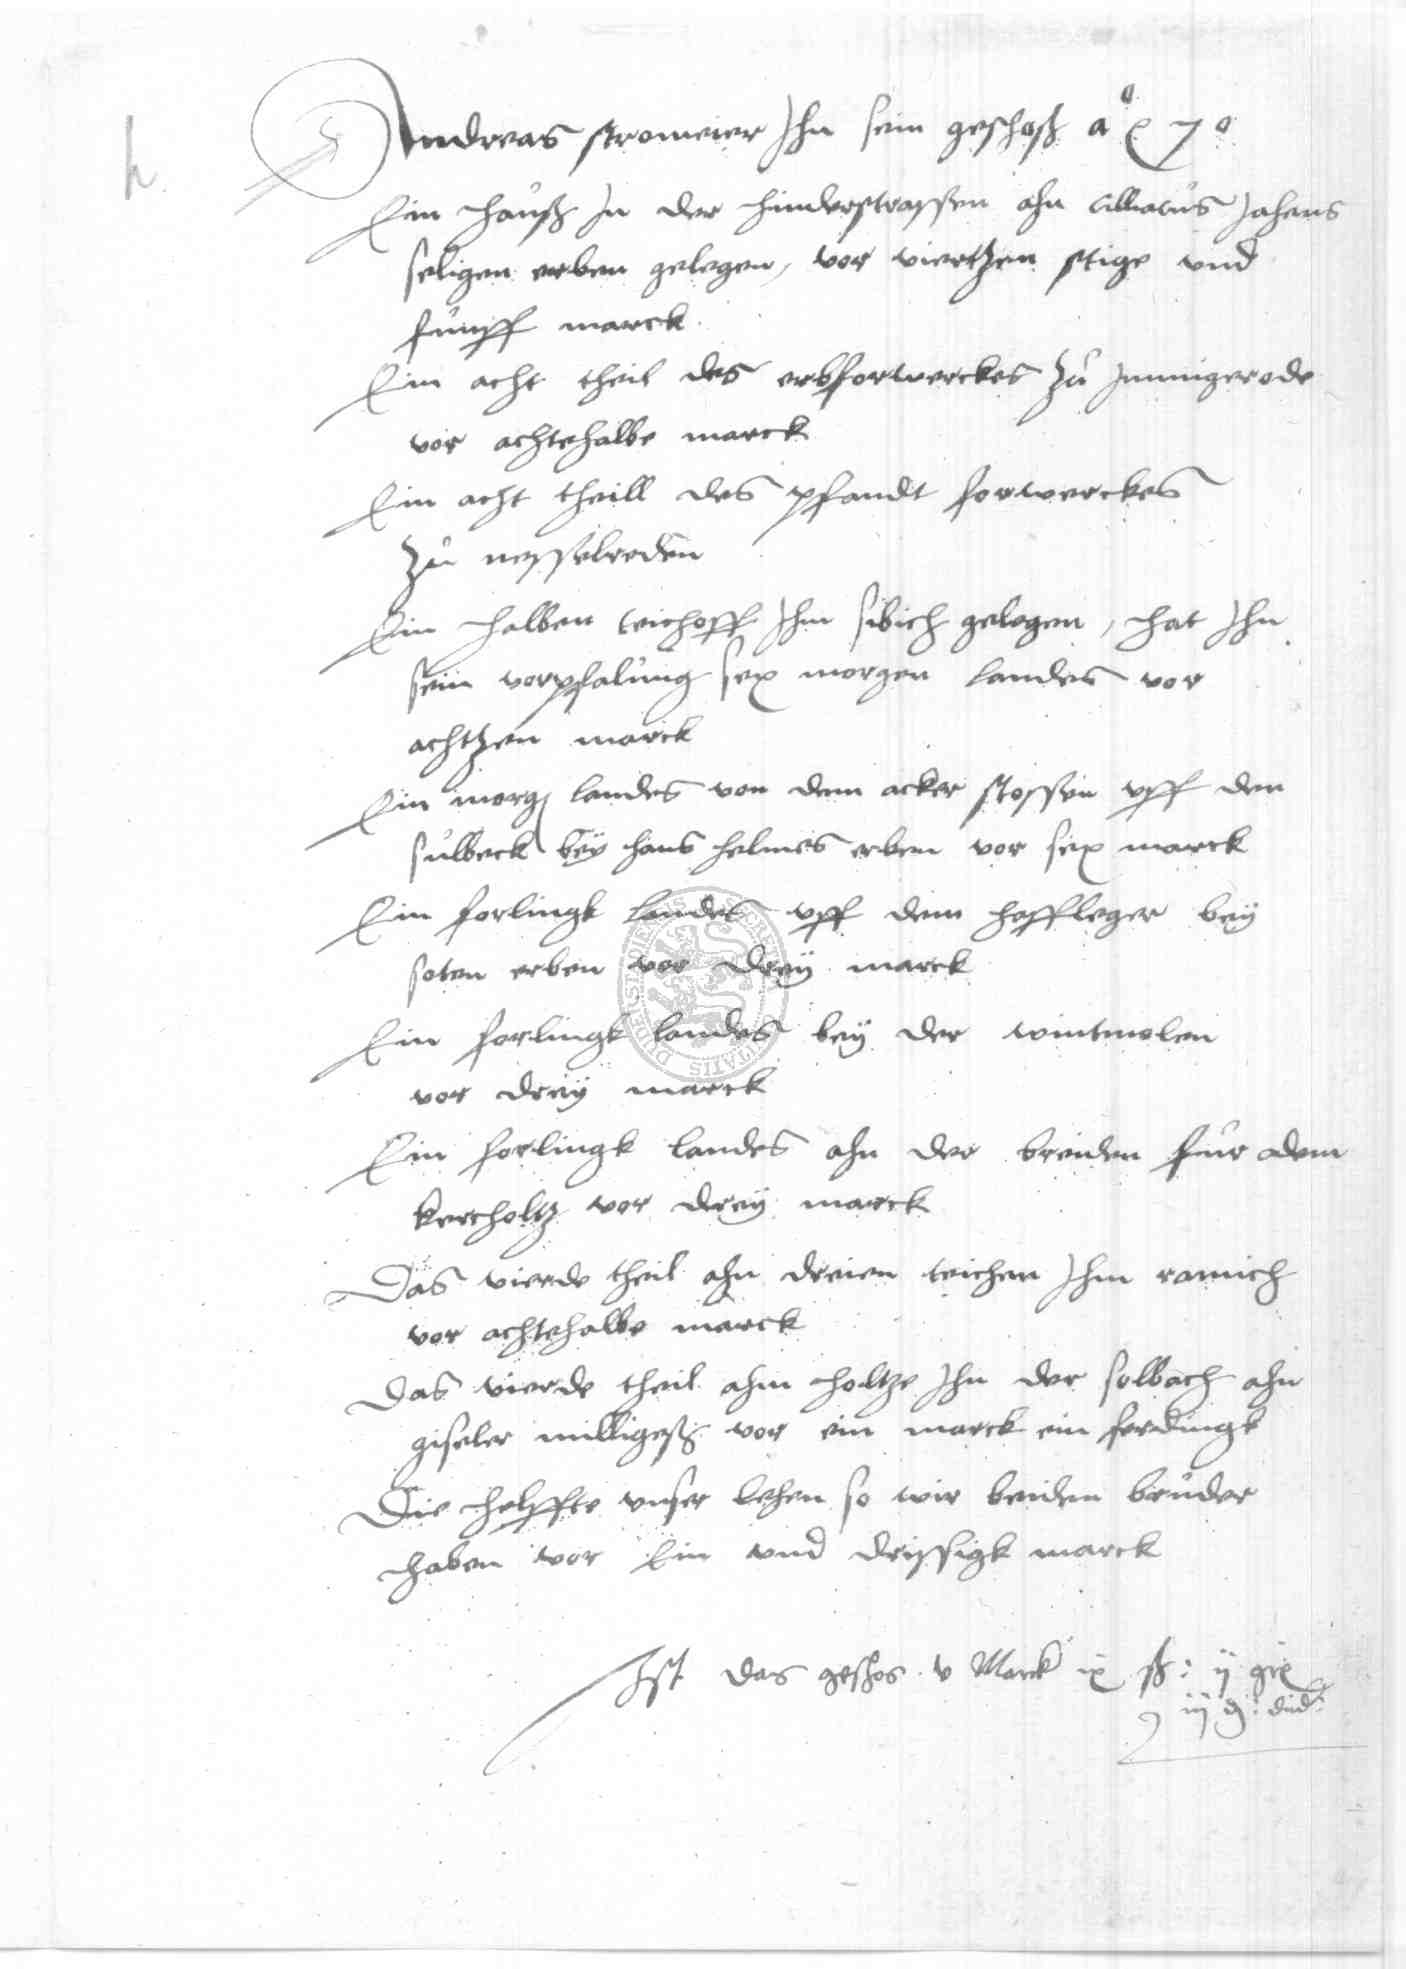 h.
Andreas stromeier Ihn sein geschoß a° 70
Ein hauß In der hinderstrassen ahn cilliacus Jahans
seligen erben gelegen, vor viertzen stige vnd
funff marck
Ein acht theil des erbforwerckes zu Immigerode
vor achtehalbe marck
Ein acht theill des pfandt forwerckes
zu nesselreden
Ein halben teichoff Ihm sibich gelegen, hat Ihn
sein vorpfalung sex morgen landes vor
achtzen marck
Ein morg landes von dem acker stossen vff den
sulbeck bey hans helmes erben vor sex marck
Ein forlingk landes vff dem hoffleger bey
soten erben vor drey marck
Ein forlingk landes bey der wintmolen
vor drey marck
Ein forlingk landes ahn der breiden fur dem
kercholtz vor drey marck
Das vierde theil ahn dreien teichen Ihm ramich
vor achtehalbe marck
Das vierde theil ahm holtze Ihn der solbach ahn
giseler milligeß vor ein marck ein ferdingk
Die helffte vnser lehen so wir beiden bruder
haben vor Ein vnd drissigk marck
Ist das geschos v Marck ix ß: ij
iij d: dud:
SECRET DUDERSTADIENSIS CIVITATIS